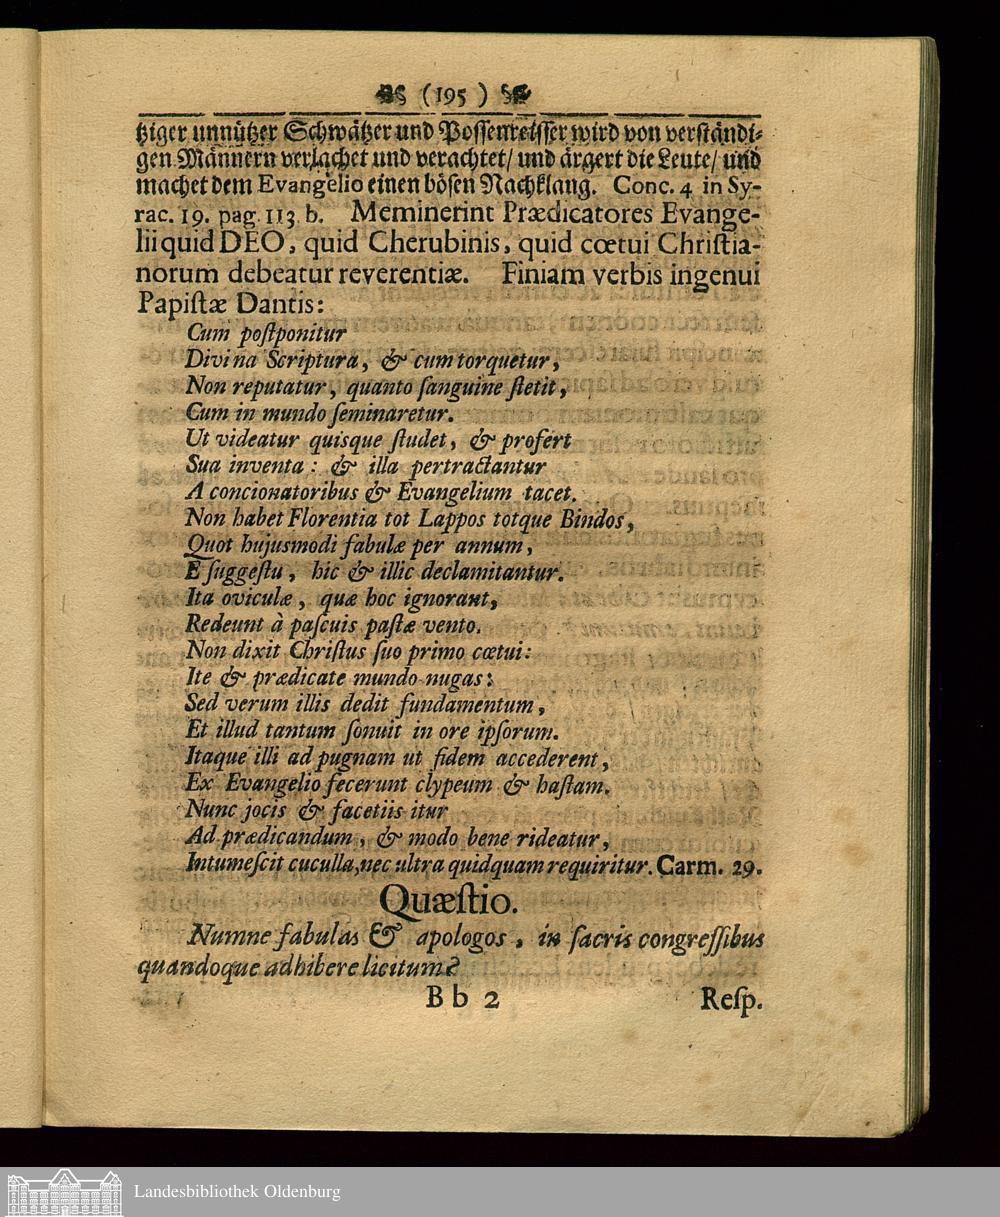 (195)
tziger unnützer Schwätzer und Possenreisser wird von verständi-
gen Männern verlachet und verachtet/ und ärgert die Leute/ und
machet dem Evangelio einen bösen Nachklang. Conc. 4 in Sy-
rac. 19. pag. 113 b. Meminerint Prædicatores Evange-
lii quid DEO, quid Cherubinis, quid cœtui Chriſtia-
norum debeatur reverentiæ. Finiam verbis ingenui
Papiſtæ Dantis:
Cum poſtponitur
Divina Scriptura, & cum torquetur,
Non reputatur, quanto ſanguine ſtetit,
Cum in mundo ſeminaretur.
Ut videatur quisque ſtudet, & profert
Sua inventa: & illa pertractantur
A concionatoribus & Evangelium tacet.
Non habet Florentia tot Lappos totque Bindos,
Quot hujusmodi fabulæ per annum,
E ſuggeſtu, hic & illic declamitantur.
Ita oviculæ, quæ hoc ignorant,
Redeunt à paſcuis paſtæ vento.
Non dixit Chriſtus ſuo primo cœtui:
Ite & prædicate mundo nugas:
Sed verum illis dedit fundamentum,
Et illud tantum ſonuit in ore ipſorum.
Itaque illi ad pugnam ut fidem accederent,
Ex Evangelio fecerunt clypeum & haſtam.
Nunc jocis & facetiis itur
Ad prædicandum, & modo bene rideatur,
Intumeſcit cuculla, nec ultra quidquam requiritur. Carm. 29.
Quæſtio.
Numne fabulas & apologos, in ſacris congreſſibus
quandoque adhibere licitum?
B b 2 Reſp.
Landesbibliothek Oldenburg